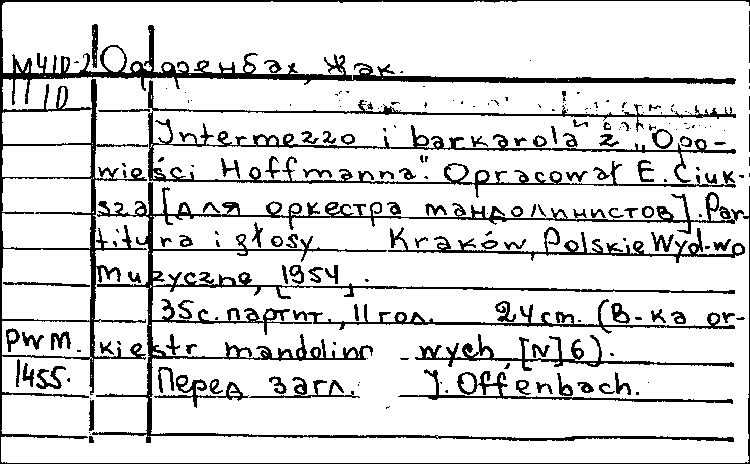 М410-2 Оффенбах, Жак.
11 10
Intermezzo i barkarola z „Opo-
wieści Hoffmanna". Opracował E. Ciuk-
sza [для оркестра мандолинистов]. Par-
titura i głosy. Kraków, Polskie Wyd-wo
Muzyczne, [1954].
35 с. партит., 11 гол. 24 cm. (B-ka or-
PWM. kiestr. mandolinowych, [N] 6).
1455. Перед загл. J. Offenbach.